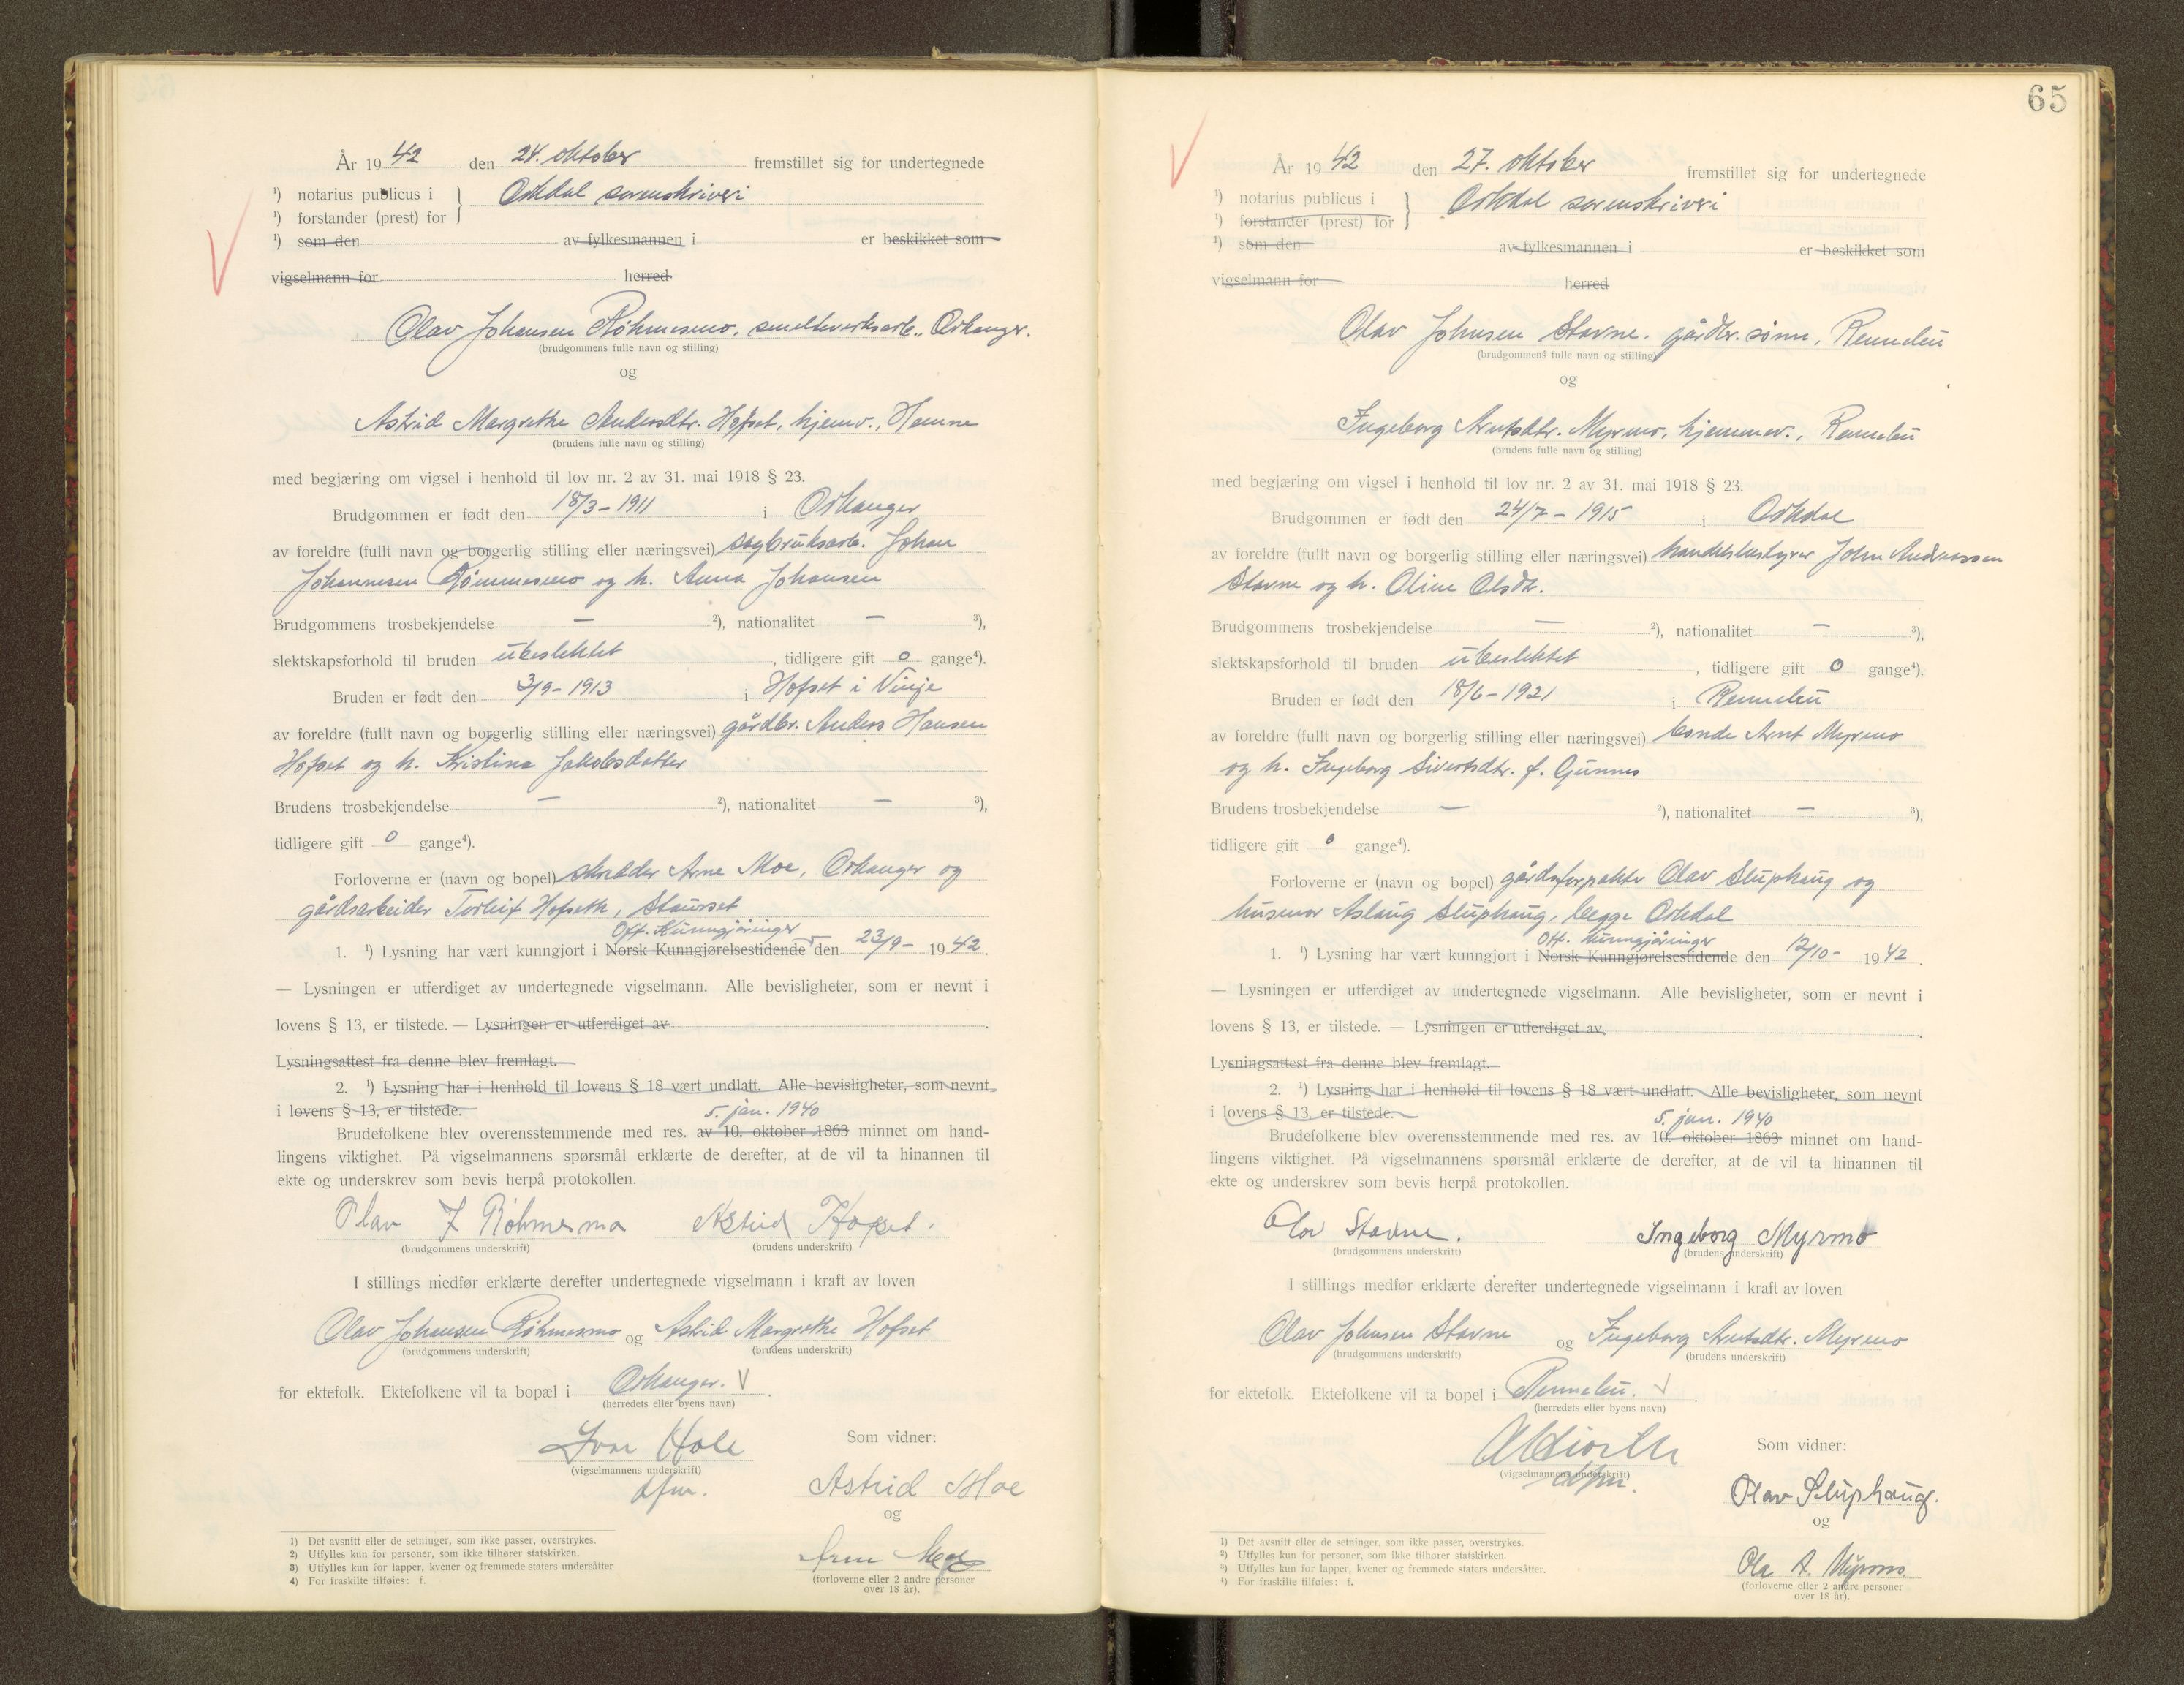 År 19 42 den 24. oktober fremstillet sig for undertegnede
¹) notarius publicus i } Orkdal sorenskriveri
¹) forstander (prest) for
¹) som den av fylkesmannen i er beskikket som
vigselmann for herred
Olav Johansen Röhmesmo, smelteverksarb., Orkanger.
(brudgommens fulle navn og stilling)
og
Astrid Margrethe Andersdtr. Hofset, hjemv., Hemne
(brudens fulle navn og stilling)
med begjæring om vigsel i henhold til lov nr. 2 av 31. mai 1918 § 23.
Brudgommen er født den 18/3 - 1911 i Orkanger
av foreldre (fullt navn og borgerlig stilling eller næringsvei) sagbruksarb. Johan
Johannesen Römmesmo og h. Anna Johansen
Brudgommens trosbekjendelse — ²), nationalitet — ³),
slektskapsforhold til bruden ubeslektet, tidligere gift 0 gange⁴).
Bruden er født den 3/9 - 1913 i Hofset i Vinje
av foreldre (fullt navn og borgerlig stilling eller næringsvei) gårdbr. Anders Hansen
Hofset og h. Kristine Jakobsdatter
Brudens trosbekjendelse — ²), nationalitet — ³),
tidligere gift 0 gange⁴).
Forloverne er (navn og bopel) skredder Arne Moe, Orkanger og
gårdsarbeider Torleif Hofseth, Staurset
Off. Kunngjöringer
1. ¹) Lysning har vært kunngjort i Norsk Kunngjørelsestidende den 23/9 - 19 42.
— Lysningen er utferdiget av undertegnede vigselmann. Alle bevisligheter, som er nevnt i
lovens § 13, er tilstede. — Lysningen er utferdiget av .
Lysningsattest fra denne blev fremlagt.
2. ¹) Lysning har i henhold til lovens § 18 vært undlatt. Alle bevisligheter, som nevnt
i lovens § 13, er tilstede.
5. jan. 1940
Brudefolkene blev overensstemmende med res. av 10. oktober 1863 minnet om hand-
lingens viktighet. På vigselmannens spørsmål erklærte de derefter, at de vil ta hinannen til
ekte og underskrev som bevis herpå protokollen.
Olav J Röhmesmo Astrid Hofset.
(brudgommens underskrift) (brudens underskrift)
I stillings medfør erklærte derefter undertegnede vigselmann i kraft av loven
Olav Johansen Röhmesmo og Astrid Margrethe Hofset
(brudgommens underskrift) (brudens underskrift)
for ektefolk. Ektefolkene vil ta bopæl i Orkanger. V .
(herredets eller byens navn)
Ivar Hole Som vidner:
(vigselmannens underskrift)
dfm. Astrid Moe
og
Arne Moe
(forloverne eller 2 andre personer
over 18 år).
1) Det avsnitt eller de setninger, som ikke passer, overstrykes.
2) Utfylles kun for personer, som ikke tilhører statskirken.
3) Utfylles kun for lapper, kvener og fremmede staters undersåtter
4) For fraskilte tilføies: f.
65
År 19 42 den 27. oktober fremstillet sig for undertegnede
¹) notarius publicus i } Orkdal sorenskriveri
¹) forstander (prest) for
¹) som den av fylkesmannen i er beskikket som
vigselmann for herred
Olav Johnsen Stavne, gårdbr. sönn, Rennebu
(brudgommens fulle navn og stilling)
og
Ingeborg Arntsdtr. Myrmo, hjemmev., Rennebu
(brudens fulle navn og stilling)
med begjæring om vigsel i henhold til lov nr. 2 av 31. mai 1918 § 23.
Brudgommen er født den 24/7 - 1915 i Orkdal
av foreldre (fullt navn og borgerlig stilling eller næringsvei) handelsbestyrer John Andreassen
Stavne og h. Oline Olsdtr.
Brudgommens trosbekjendelse — ²), nationalitet — ³),
slektskapsforhold til bruden ubeslektet, tidligere gift 0 gange⁴).
Bruden er født den 18/6 - 1921 i Rennebu
av foreldre (fullt navn og borgerlig stilling eller næringsvei) bonde Arnt Myrmo
og h. Ingeborg Sivertsdtr. f. Gunnes
Brudens trosbekjendelse — ²), nationalitet — ³),
tidligere gift 0 gange⁴).
Forloverne er (navn og bopel) gårdsforpakter Olav Sluphaug og
husmor Aslaug Sluphaug, begge Orkdal
Off. Kunngjöringer
1. ¹) Lysning har vært kunngjort i Norsk Kunngjørelsestidende den 12/10 - 19 42.
— Lysningen er utferdiget av undertegnede vigselmann. Alle bevisligheter, som er nevnt i
lovens § 13, er tilstede. — Lysningen er utferdiget av .
Lysningsattest fra denne blev fremlagt.
2. ¹) Lysning har i henhold til lovens § 18 vært undlatt. Alle bevisligheter, som nevnt
i lovens § 13, er tilstede.
5. jan. 1940
Brudefolkene blev overensstemmende med res. av 10. oktober 1863 minnet om hand-
lingens viktighet. På vigselmannens spørsmål erklærte de derefter, at de vil ta hinannen til
ekte og underskrev som bevis herpå protokollen.
Olav Stavne. Ingeborg Myrmo
(brudgommens underskrift) (brudens underskrift)
I stillings medfør erklærte derefter undertegnede vigselmann i kraft av loven
Olav Johnsen Stavne og Ingeborg Arntsdtr. Myrmo
(brudgommens underskrift) (brudens underskrift)
for ektefolk. Ektefolkene vil ta bopel i Rennebu. V .
(herredets eller byens navn)
Som vidner:
(vigselmannens underskrift)
Olav Sluphaug.
og
Ola A. Myrmo.
(forloverne eller 2 andre personer
over 18 år).
¹) Det avsnitt eller de setninger, som ikke passer, overstrykes.
²) Utfylles kun for personer, som ikke tilhører statskirken.
³) Utfylles kun for lapper, kvener og fremmede staters undersåtter.
⁴) For fraskilte tilføies: f.